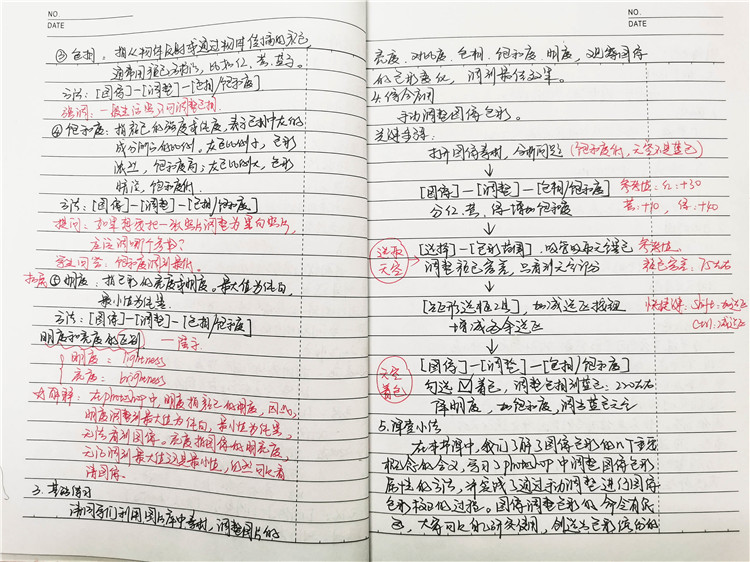 NO.
DATE
③ 色相：指从物体反射或通过物体传播的颜色，
通常用颜色名标识，比如红、黄、蓝等。
方法：[图像]-[调整]-[色相/饱和度]
强调：一般生活照不可调整色相.
④ 饱和度：指颜色的强度或纯度，表示色相中灰的
成分所占的比例，灰色比例小，色彩
浓烈，饱和度高；灰色比例大，色彩
暗淡，饱和度低.
方法：[图像]-[调整]-[色相/饱和度]
提问：如果想要把一张照片调整为黑白照片，
应该调哪个参数？
学生回答：饱和度调到最低。
拓展 ① 明度：指色彩的亮度或明度。最大值为纯白，
最小值为纯黑.
方法：[图像]-[调整]-[色相/饱和度]
明度和亮度的区别
明度：lightness
亮度：brightness
在photoshop中，明度指颜色的明度，因此，
明度调整到最大值为纯白，最小值为纯黑，
无法看到图像。亮度指图像的明亮度，
无论调到最大值还是最小值，仍然可以看
清图像.
3. 基础练习
请同学们利用图片库中素材，调整图片的
NO.
DATE
亮度、对比度、色相、饱和度、明度，观察图像
的色彩变化，调到最佳效果。
4. 综合应用
手动调整图像色彩。
关键步骤：
打开图像素材，分析问题 (饱和度低，天空不是蓝色)
[图像]-[调整]-[色相/饱和度] 参考值：红：+30
分红、黄、绿增加饱和度 黄：+10，绿：+40
选取
天空
[选择]-[色彩范围]，吸管吸取天空蓝色 参考值：
调整颜色容差，只看到天空部分 颜色容差：75左右
[矩形选框工具]，加减选区按钮 快捷键：Shift：加选区
增减多余选区 Ctrl：减选区
天空
着色
[图像]-[调整]-[色相/饱和度]
勾选☑着色，调整色相到蓝色：220左右
降明度，加饱和度，调出蓝色天空
5. 课堂小结
在本节课中，我们了解了图像色彩的几个重要
概念的含义，学习了photoshop中调整图像色彩
属性的方法，并尝试了通过手动调整进行图像
色彩校正的过程。图像调整色彩的命令有很
多，大家可以自己研究使用，创造出色彩缤纷的